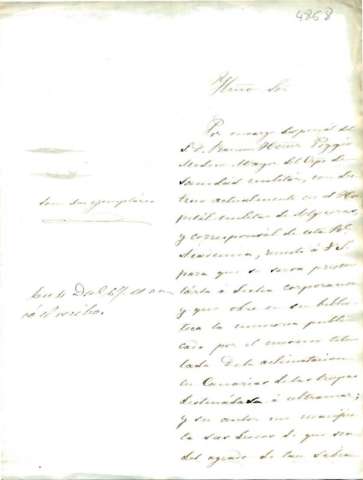 4868
Ylmo Sor
Por encargo especial del
Sr. D. Ramon Hernz Poggio
Medico Mayor del Cpo. de
sanidad militar, con des
tino actualmente en el Hos
pital militar de Algeciras
y corresponsal de esta Rl.
Academia, remito á V.S.
para que se sirva presen
tarla á dicha corporacion
y que obre en su biblio
teca la memoria publi
cada por el mismo titu
lada De la aclimatacion
en Canarias de las tropas
destinadas á ultramar;
y su autor me manifies
ta sus deseos de que sea
del agrado de tan sabia
son dos ejemplares
ró el recibo.